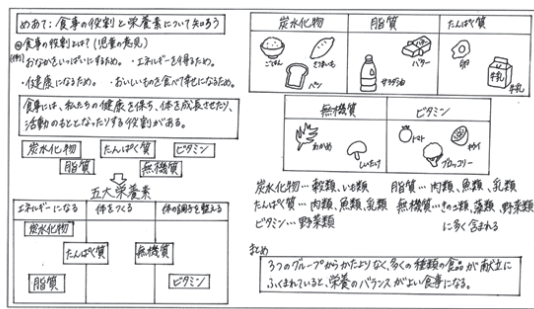 めあて：食事の役割と栄養素について知ろう
◎食事の役割とは？(児童の意見)
(例)・おなかをいっぱいにするため。・エネルギーを得るため。
・健康になるため。・おいしいものを食べて幸せになるため。
食事には、私たちの健康を保ち、体を成長させたり、
活動のもととなったりする役割がある。
炭水化物 たんぱく質 ビタミン
脂質 無機質
五大栄養素
エネルギーになる 体をつくる 体の調子を整える
炭水化物
たんぱく質 無機質
脂質 ビタミン
炭水化物 脂質 たんぱく質
ごはん さつまいも バター 卵
パン サラダ油 牛乳
無機質 ビタミン
わかめ トマト
しいたけ ブロッコリー
炭水化物…穀類、いも類 脂質…肉類、魚類、乳類
たんぱく質…肉類、魚類、乳類 無機質…きのこ類、藻類、野菜類
ビタミン…野菜類 に多く含まれる
まとめ
3つのグループからかたよりなく、多くの種類の食品が献立に
ふくまれていると、栄養のバランスがよい食事になる。